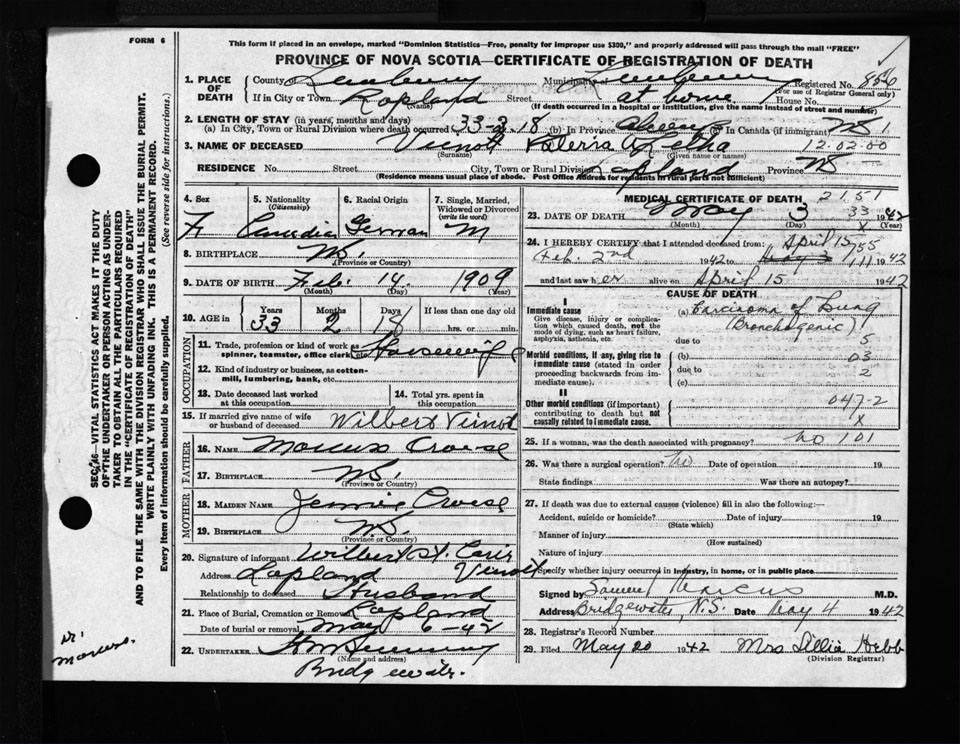 FORM 6
This form if placed in an envelope, marked "Dominion Statistics—Free, penalty for improper use $300," and properly addressed will pass through the mail "FREE"
PROVINCE OF NOVA SCOTIA—CERTIFICATE OF REGISTRATION OF DEATH
1. PLACE OF DEATH County of Lunenburg Municipality of Lunenburg Registered No. 856
(For use of Registrar General only)
If in City or Town Lapland (Name) Street at home House No.
(If death occurred in a hospital or institution, give the name instead of street and number)
2. LENGTH OF STAY (in years, months and days)
(a) In City, Town or Rural Division where death occurred 33-2-18 (b) In Province always (c) In Canada (if immigrant) NS 1
3. NAME OF DECEASED Vienot (Surname) (Given name or names) 12-02-00
RESIDENCE No. Street City, Town or Rural Division Lapland Province NS
(Residence means usual place of abode. Post Office Address for residents in rural parts not sufficient)
4. Sex F
5. Nationality (Citizenship) Canadian
6. Racial Origin German
7. Single, Married, Widowed or Divorced (write the word) M
8. BIRTHPLACE N.S. (Province or Country)
9. DATE OF BIRTH Feb. (Month) 14 (Day) 1909 (Year)
10. AGE in Years 33 Months 2 Days 18 If less than one day old hrs. or min.
OCCUPATION
11. Trade, profession or kind of work as spinner, teamster, office clerk, etc. Housewife
12. Kind of industry or business, as cotton-mill, lumbering, bank, etc.
13. Date deceased last worked at this occupation
14. Total yrs. spent in this occupation
15. If married give name of wife or husband of deceased Wilbert Vienot
FATHER
16. NAME Crouse
17. BIRTHPLACE N.S. (Province or Country)
MOTHER
18. MAIDEN NAME Jennie Crouse
19. BIRTHPLACE N.S. (Province or Country)
20. Signature of informant Wilbert St. Vienot
Address Lapland
Relationship to deceased Husband
21. Place of Burial, Cremation or Removal Lapland
Date of burial or removal May 6-42
22. UNDERTAKER
(Name and address)
Bridgewater.
MEDICAL CERTIFICATE OF DEATH 2151
23. DATE OF DEATH May (Month) 3 (Day) 33 1942 (Year)
X
24. I HEREBY CERTIFY that I attended deceased from: April 15 755
Feb. 2nd 1942 to May 3 111 1942
and last saw her alive on April 15 1942
CAUSE OF DEATH
I
Immediate cause
Give disease, injury or complication which caused death, not the mode of dying, such as heart failure, asphyxia, asthenia, etc.
(a) Carcinoma of Lung
(Bronchogenic)
due to 5
Morbid conditions, if any, giving rise to immediate cause (stated in order proceeding backwards from immediate cause).
(b) 03
due to 2
(c)
II
Other morbid conditions (if important) contributing to death but not causally related to immediate cause.
047-2
X
25. If a woman, was the death associated with pregnancy? no 101
26. Was there a surgical operation? No Date of operation 19
State findings Was there an autopsy?
27. If death was due to external causes (violence) fill in also the following:—
Accident, suicide or homicide? (State which) Date of injury 19
Manner of injury (How sustained)
Nature of injury
Specify whether injury occurred in industry, in home, or in public place
Signed by Samuel Marcus M.D.
Address Bridgewater, N.S. Date May 4 1942
28. Registrar's Record Number
29. Filed May 20 1942 Mrs Lillia Hebb
(Division Registrar)
SEC. 16—VITAL STATISTICS ACT MAKES IT THE DUTY
OF "THE UNDERTAKER OR PERSON ACTING AS UNDERTAKER TO OBTAIN ALL THE PARTICULARS REQUIRED
IN THE "CERTIFICATE OF REGISTRATION OF DEATH"
AND TO FILE THE SAME WITH THE DIVISION REGISTRAR WHO SHALL ISSUE THE BURIAL PERMIT.
WRITE PLAINLY WITH UNFADING INK. THIS IS A PERMANENT RECORD.
Every item of information should be carefully supplied. (See reverse side for instructions.)
Dr.
Marcus.